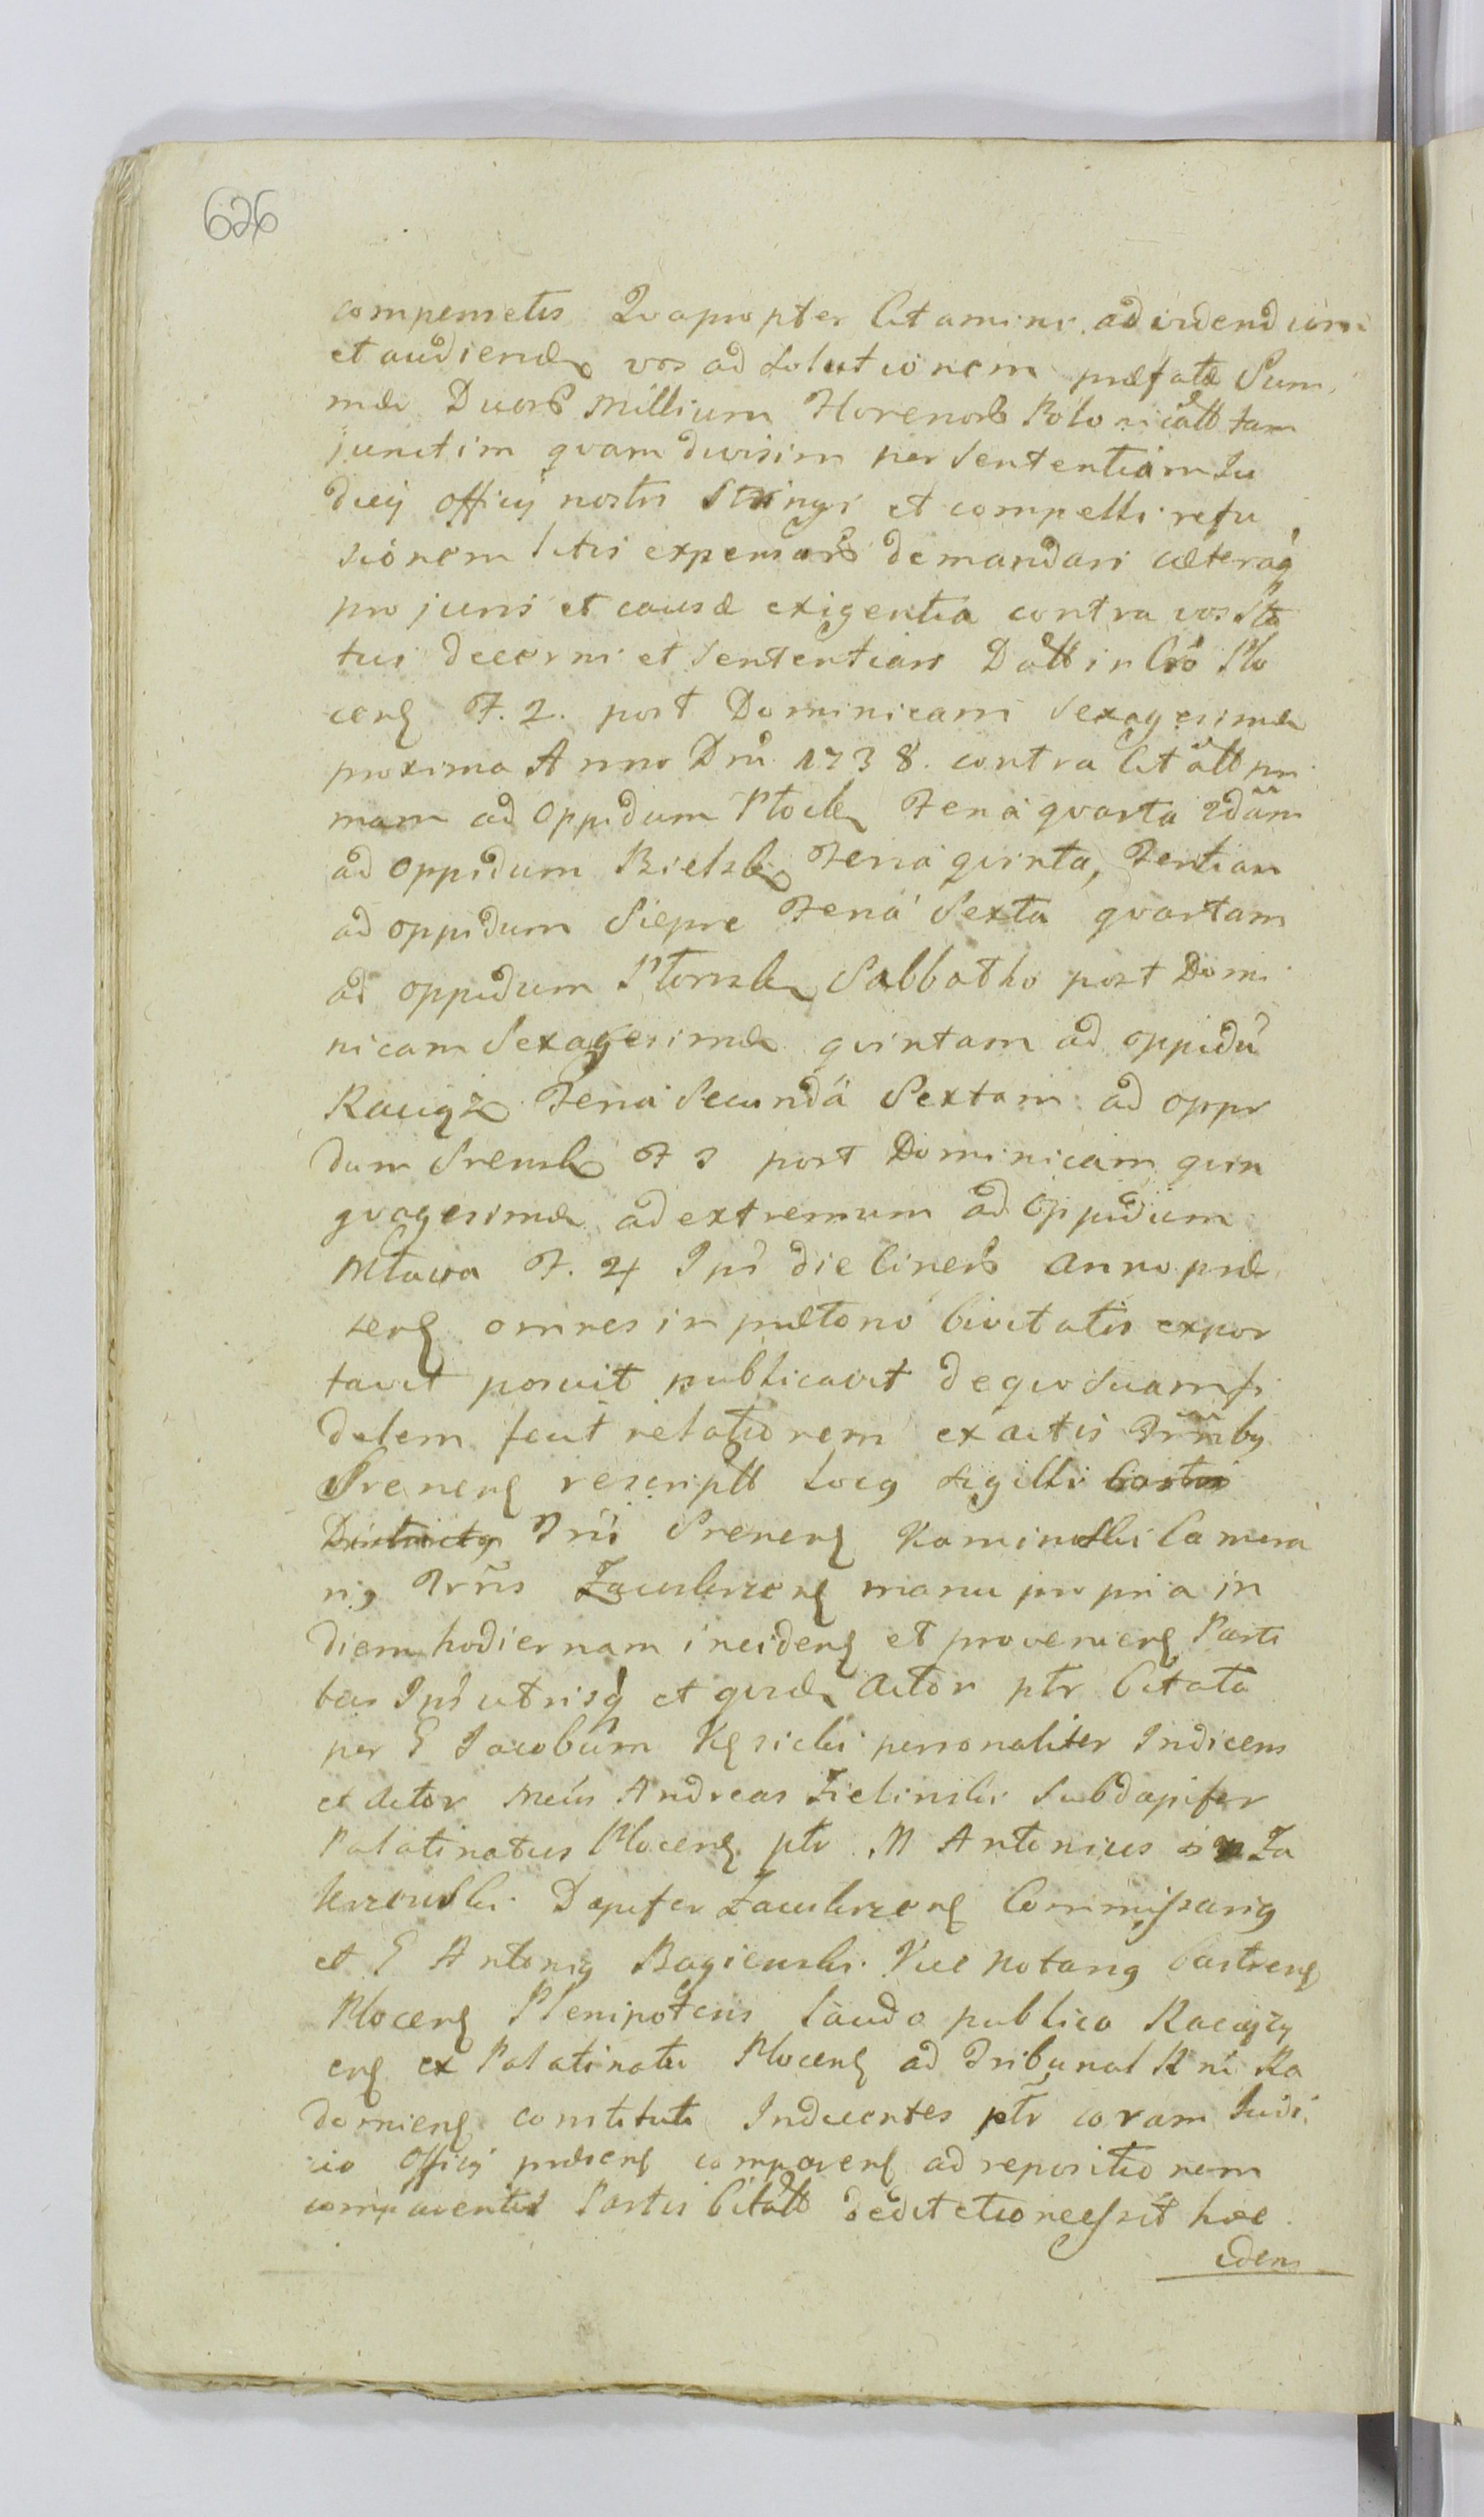 626
compensetis Qvapropter Citamini ad videndum
et audiend vos ad Solutionem præfatæ Sum
mæ Duorb Millium Florenorb Polonicãlb tam
junctim qvam divisim per Sententiam Ju
dicij Officij nostri Stringi et compelli refu
sionem litis expensarb demandari cæteraq
pro juris et causæ exigentia contra vos
tui decerni et Sententiari Datt in Cro Plo
cen F. 2. post Dominicam Sexagesimæ
proxima Anno Dni 1738. contra Citatt pri
mam ad Oppidum Plock Feria qvarta 2dam
ad Oppidum Bielsk Feria qvinta, Tertiam
ad oppidum Sierpc Feria Sexta qvartam
ad oppidum Płonsk Sabbatho post Domi
nicam Sexagesimæ qvintam ad oppidu
Raciąż Feria Secunda Sextam ad oppi
dum Srensk F 3 post Dominicam qvin
qvagesimæ ad extremum ad Oppidum
Mława F. 4 Ipo die Cinerb Anno præ
sen omnes in prætorio Civitatis expor
tavit posuit publicavit de qvo Suam fi
delem fecit relationem ex actis Trrnibg
Srenen rescriptt Locg Sigilli Castri
Districtg Trri Srenen Kaminski Camera
rig Trris Zawkrzen manu propria in
diem hodiernam inciden et provenien Parti
bus Ips utrisq et qvidem Actor ptr Citata
per G Jacobum Kęsicki personaliter Indicens
et Actor Mcus Andreas Zielinski Subdapifer
Palatinatus Plocen ptr M Antonius in Za
krzewski Dapifer Zawkrzen Commissarig
et G Antonig Bagienski Vice Notarig Castren
Plocen Plenipotens Laudo publico Raciąży
en ex Palatinatu Plocen ad Tribunal Rni Ra
domien constituti Inducentes ptr coram Judi
cio Officij præsen comparen ad repositionem
comparentis Partis Citatt dedit actionem hæc
idem